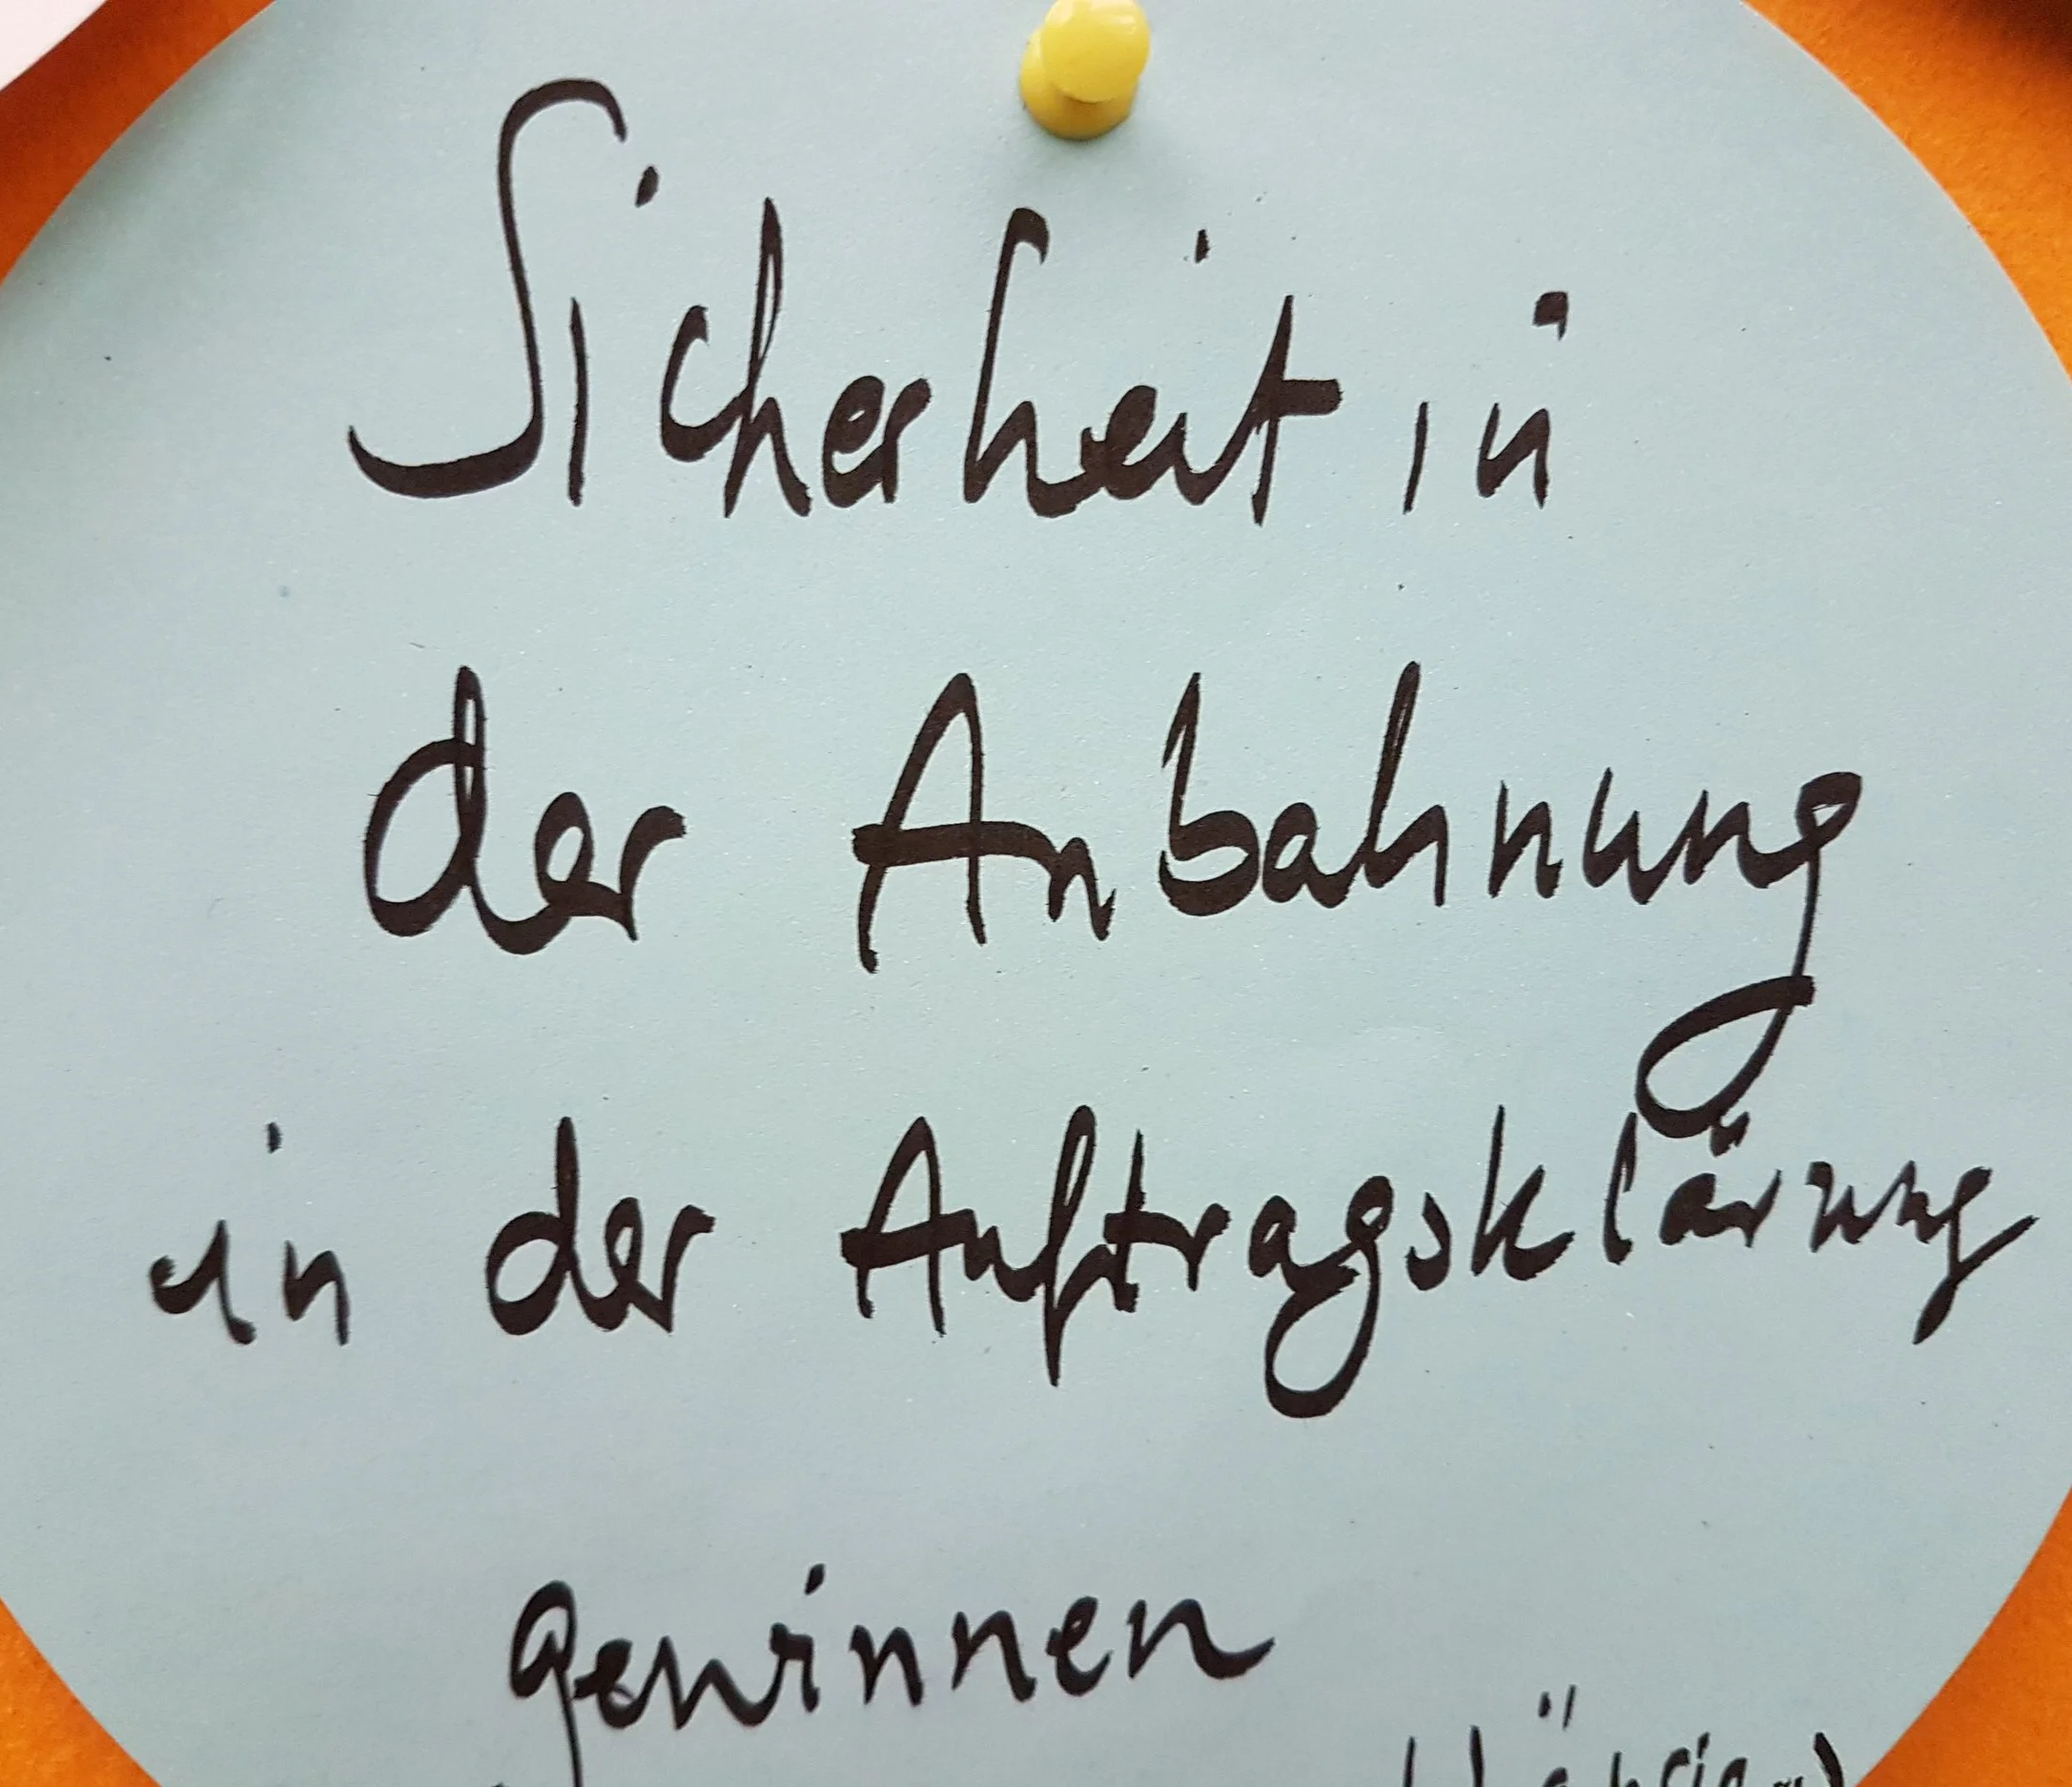 Sicherheit in
der Anbahnung
in der Auftragsklärung
gewinnen